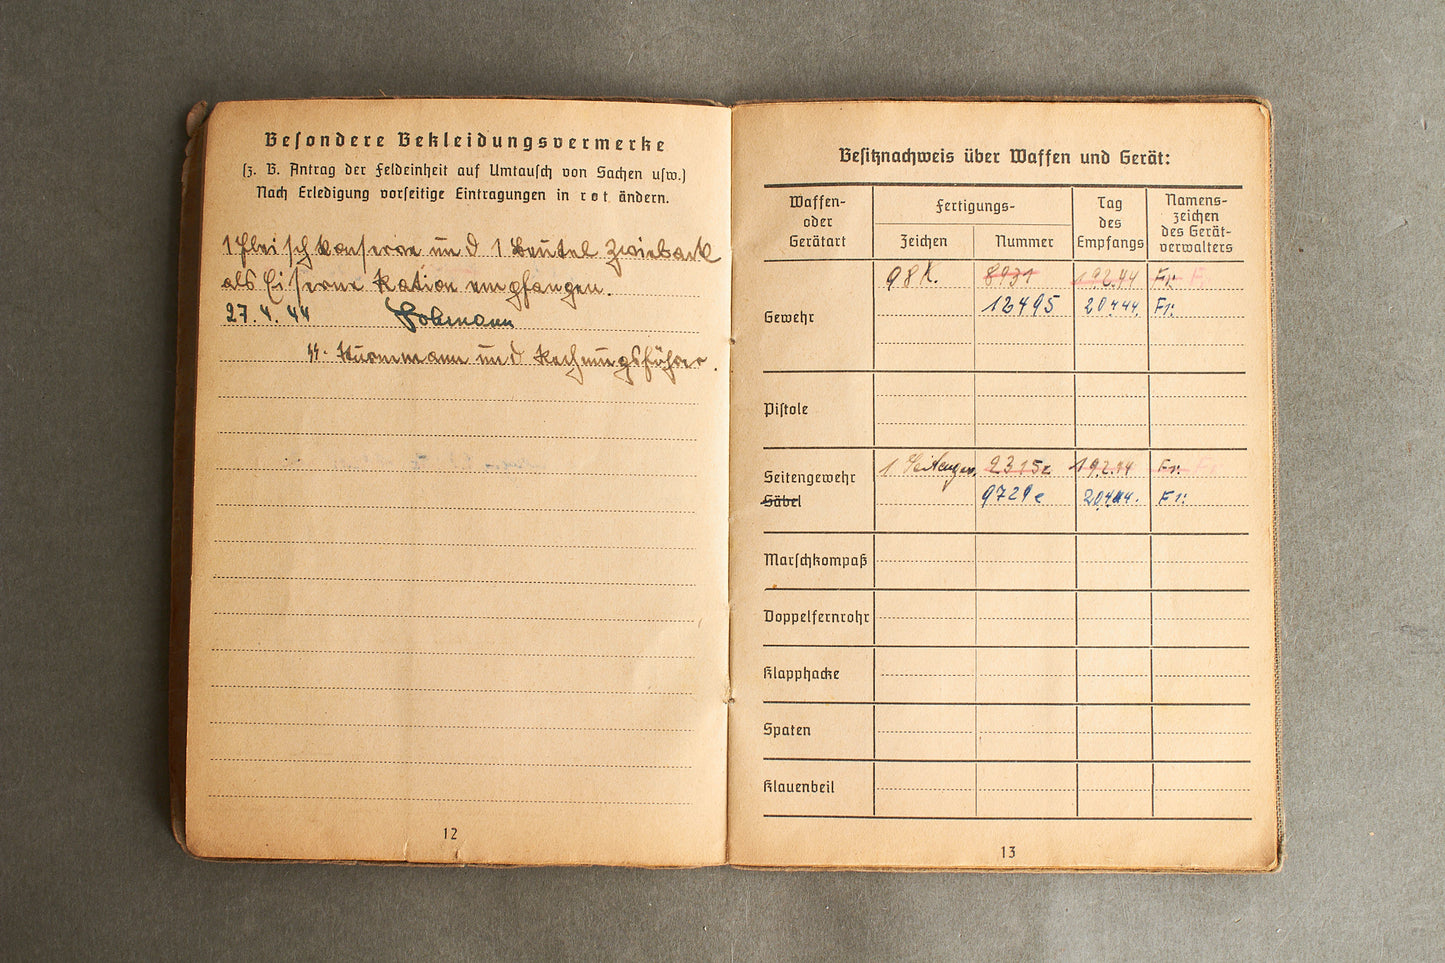 Besondere Bekleidungsvermerke
(z. B. Antrag der Feldeinheit auf Umtausch von Sachen usw.)
Nach Erledigung vorseitige Eintragungen in rot ändern.
1 Fleischkonserve und 1 Beutel Zwieback
als Eiserne Ration empfangen.
27.4.44
SS-Sturmmann und Rechnungsführer.
12
Besitznachweis über Waffen und Gerät:
Waffen- oder Gerätart
Fertigungs-
Zeichen
Nummer
Tag des Empfangs
Namens-zeichen des Gerät-verwalters
Gewehr
98 K. 8931 19.2.44 Fr.
12495 20.4.44. Fr.
Pistole
Seitengewehr
Säbel
1 Seitengew. 2315 19.2.44 Fr.
9729 e 20.4.44. Fr.
Marschkompaß
Doppelfernrohr
Klapphacke
Spaten
Klauenbeil
13